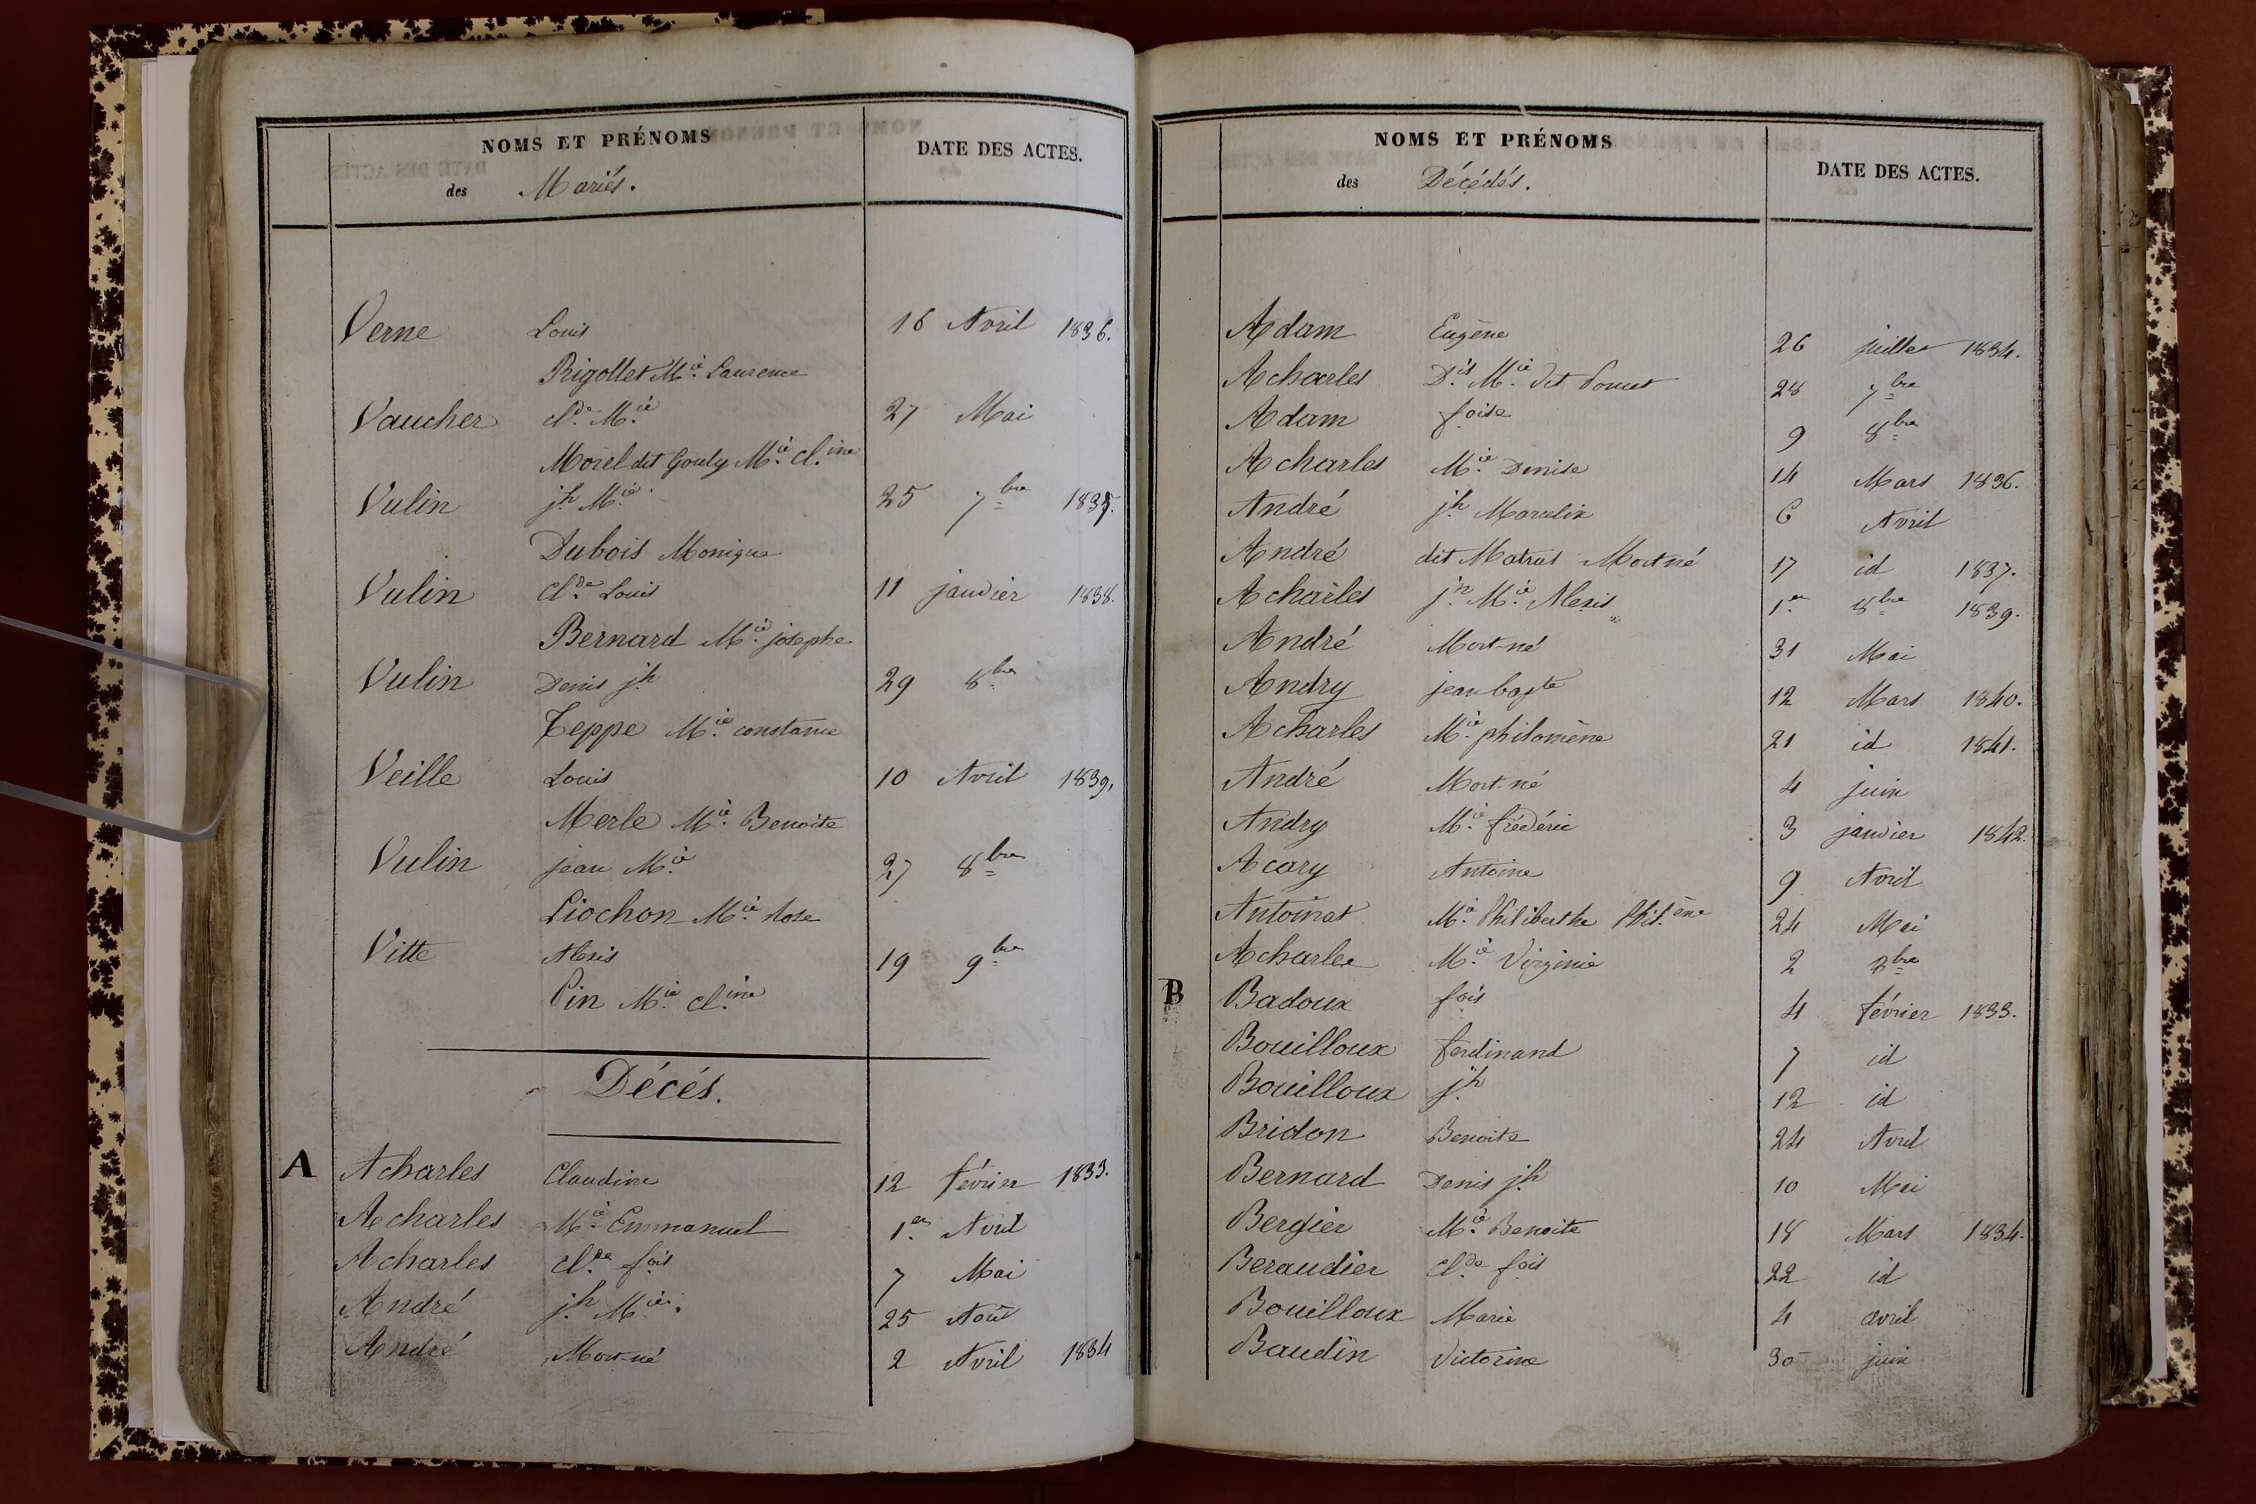 NOMS ET PRÉNOMS
des Mariés.
DATE DES ACTES.
Verne Louis 16 Avril 1836.
Rigollet M.ie Laurence
Vaucher cl.de M.ie 27 Mai
Morel dit Gouly M.ie Cl.ine
Vulin j.h M.ie 25 7.bre 1837.
Dubois Monique
Vulin Cl.de Louis 11 janvier 1838.
Bernard M.ie josephe
Vulin Denis j.h 29 8.bre
Teppe M.ie constance
Veille Louis 10 Avril 1839,
Merle M.ie Benoite
Vulin jean M.ie 27 8.bre
Liochon M.ie Rose
Vitte Alexis 19 9.bre
Pin M.ie cl.ine
Décés.
A Acharles Claudine 12 février 1833.
Acharles M.ie Emmanuel 1.er Avril
Acharles Cl.de f.ois 7 Mai
André j.h M.ie. 25 Août
André Mort-né 2 Avril 1834
NOMS ET PRÉNOMS
des Décédés.
DATE DES ACTES.
Adam Eugène 26 juillet 1834.
Acharles D.is M.ie dit 28 7.bre
Adam f.oise 9 8.bre
Acharles M.ie Denise 14 Mars 1836.
André j.h Marcelin 6 Avril
André dit Matras Mort né 17 id 1837.
Acharles j.n M.ie Alexis 1.er 8.bre 1839.
André Mort-né 31 Mai
Andry jean bapte 12 Mars 1840.
Acharles M.ie philomène 21 id 1841.
André Mort-né 4 juin
Andry M.ie frédéric 3 janvier 1842.
Acary Antoine 9 Avril
Antoinat M.ie Philiberthe Phil.ène 24 Mai
Acharles M.ie Virginie 2 8.bre
B Badoux f.ois 4 février 1833.
Bouilloux ferdinand 7 id
Bouilloux j.h 12 id
Bridon Benoite 24 Avril
Bernard Denis j.h 10 Mai
Bergier M.ie Benoite 18 Mars 1834.
Beraudier Cl.de f.ois 22 id
Bouilloux Marie 4 avril
Baudin Victorine 30 juin